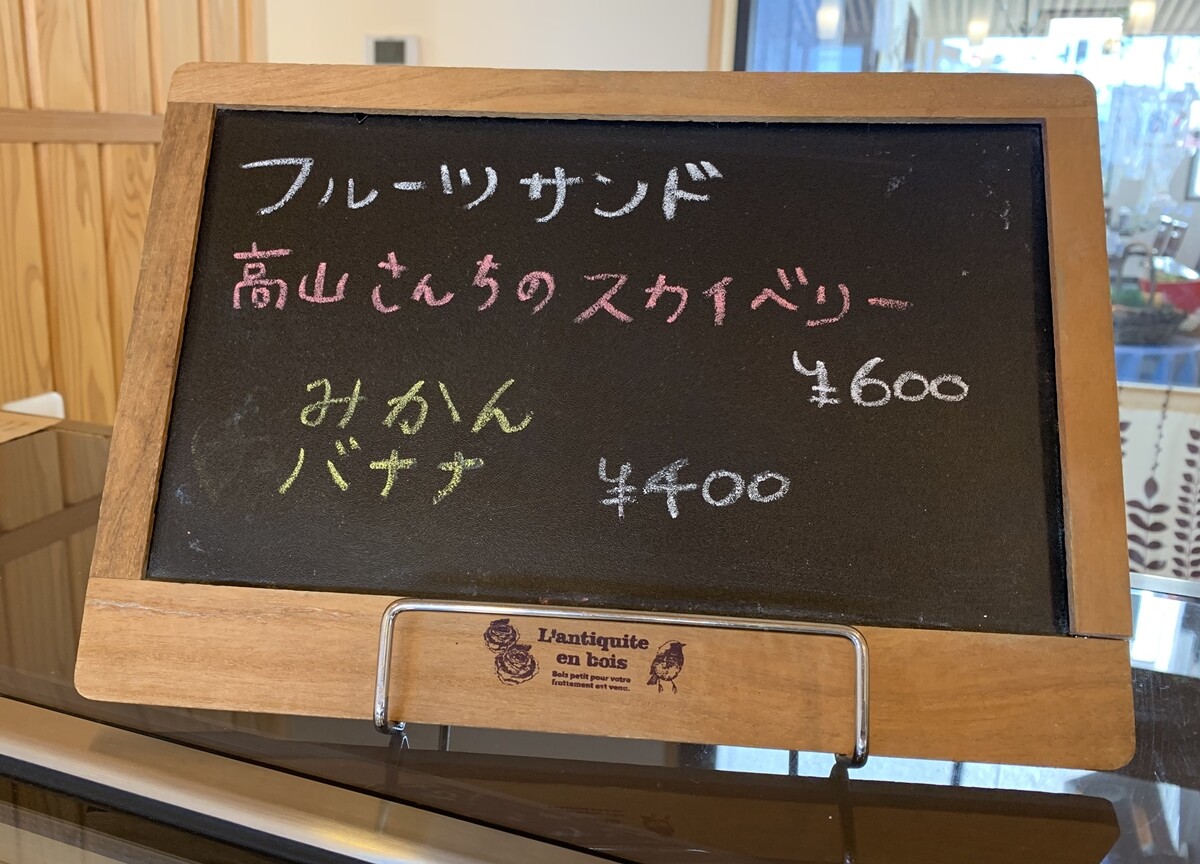 フルーツサンド
高山さんちのスカイベリー
¥600
みかん
バナナ ¥400
L'antiquite
en bois
Bois petit pour votre
frottement est venu.